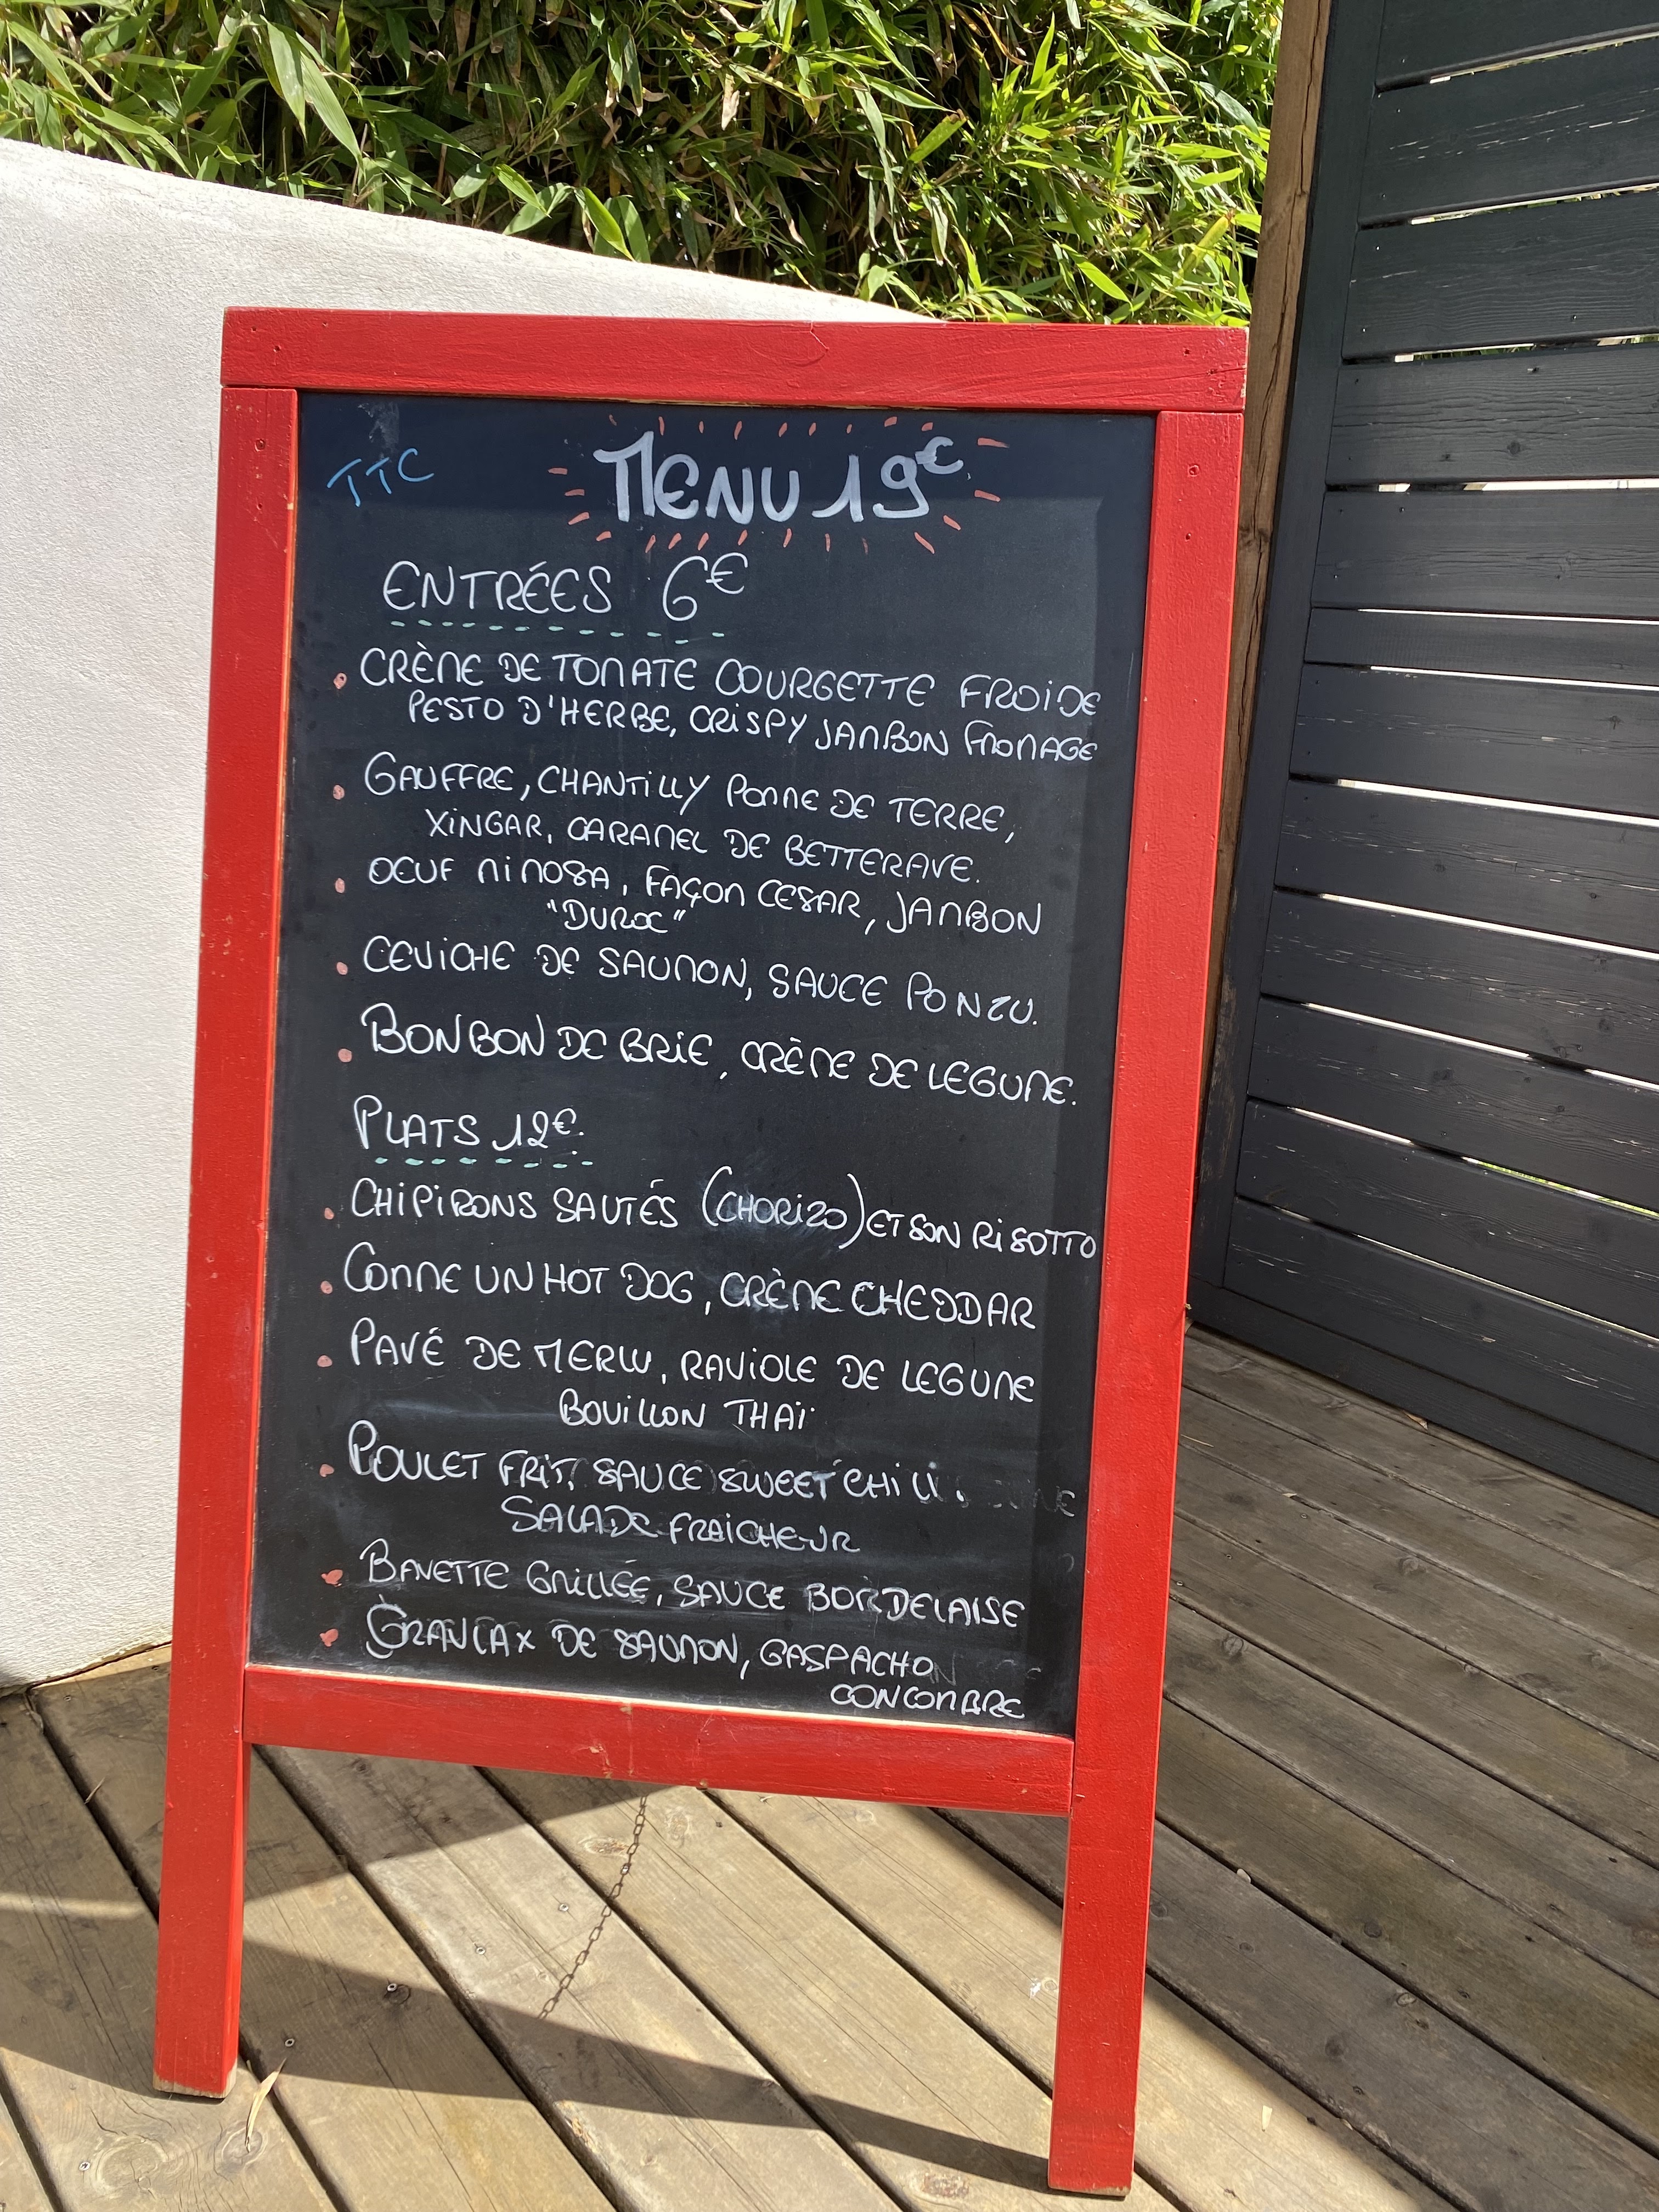 TTC
MENU 19€
ENTRÉES 6€
CRÈME DE TOMATE COURGETTE FROIDE
PESTO D'HERBE, CRISPY JAMBON FROMAGE
GAUFFRE, CHANTILLY POMME DE TERRE,
XINGAR, CARAMEL DE BETTERAVE.
OEUF MIMOSA, FAÇON CESAR, JAMBON
"DUROC"
CEVICHE DE SAUMON, SAUCE PONZU.
BONBON DE BRIE, CRÈME DE LEGUME.
PLATS 12€.
CHIPIRONS SAUTÉS (CHORIZO) ET SON RISOTTO
COMME UN HOT DOG, CRÈME CHEDDAR
PAVÉ DE MERLU, RAVIOLE DE LEGUME
BOUILLON THAÏ
POULET FRIT, SAUCE SWEET CHILI.
SALADE FRAICHEUR
BAVETTE GRILLÉE, SAUCE BORDELAISE
GRAVLAX DE SAUMON, GASPACHO
CONCOMBRE